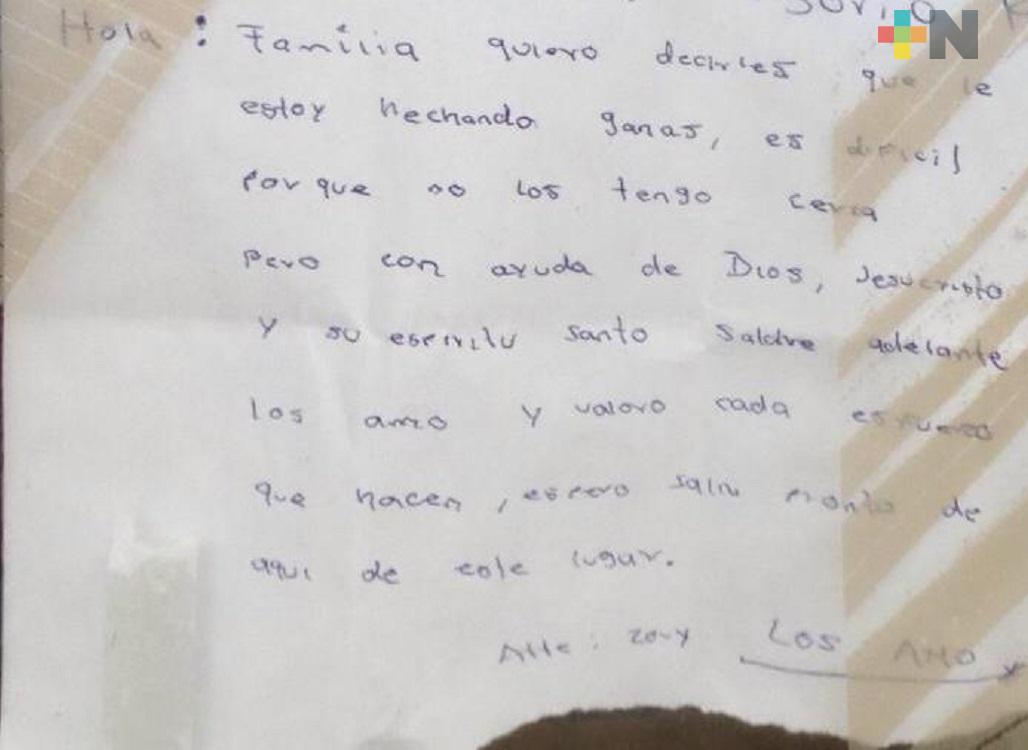 +N
Hola : Familia quiero decirles que le
estoy hechando ganas, es dificil
por que no los tengo cerca
pero con ayuda de Dios, Jesucristo
y su espiritu santo saldre adelante
los amo y valoro cada esfuerzo
que hacen, espero salir pronto de
aqui de este lugar.
Atte: Los AMO